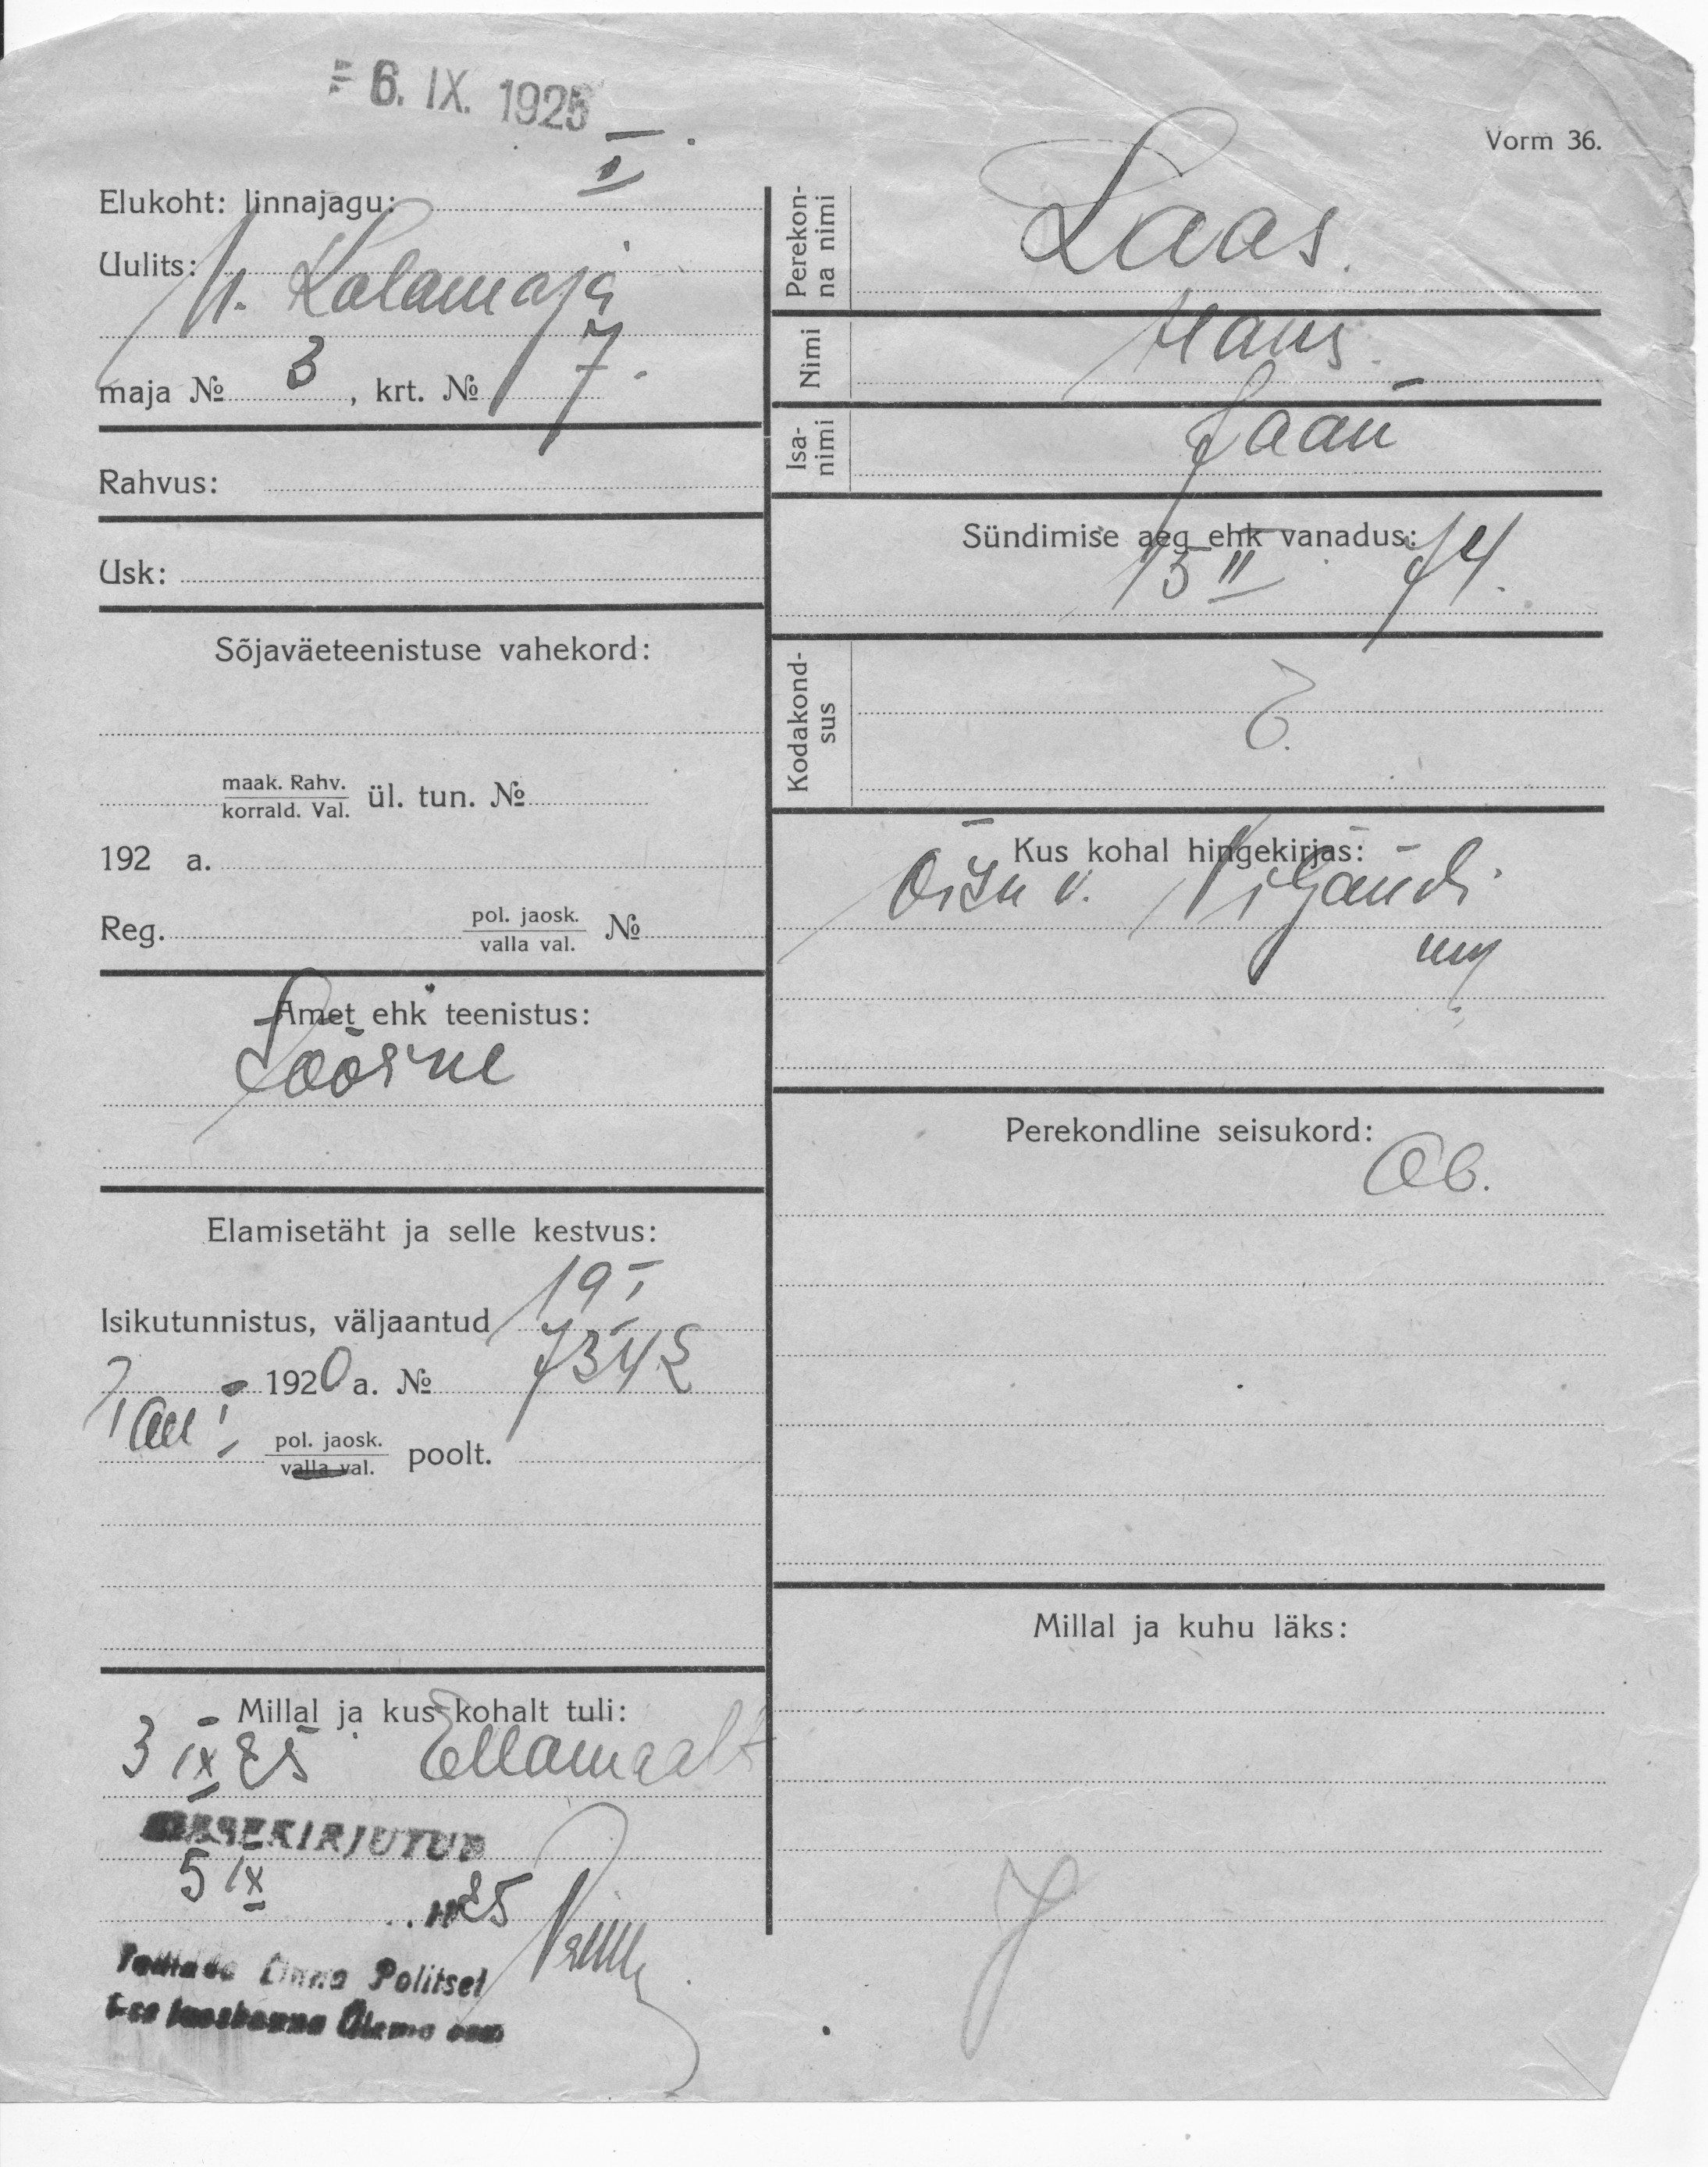 = 6. IX. 1925
Vorm 36.
Elukoht: linnajagu: I
Uulits: V. Kalamaja
maja № 3, krt. № 7.
Rahvus:
Usk:
Sõjaväeteenistuse vahekord:
maak. Rahv.
korrald. Val. ül. tun. №
192 a.
Reg. pol. jaosk.
valla val. №
Amet ehk teenistus:
Tööline
Elamisetäht ja selle kestvus:
19 I
Isikutunnistus, väljaantud
1920 a. № 7342
Tall I pol. jaosk.
valla val. poolt.
Millal ja kus kohalt tuli:
3 IX 25 Ellamaalt
SISSEKIRJUTUD
5 IX 1925
Tallinna Linna Politsei
I-se Jaoskonna Ülema
Perekon-
na nimi
Laas.
Nimi
Hans
Isa-
nimi
Jaan
Sündimise aeg ehk vanadus:
15 II 74.
Kodakond-
sus
E.
Kus kohal hingekirjas:
Õisu v. Viljandi
m
Perekondline seisukord:
Ab.
Millal ja kuhu läks: